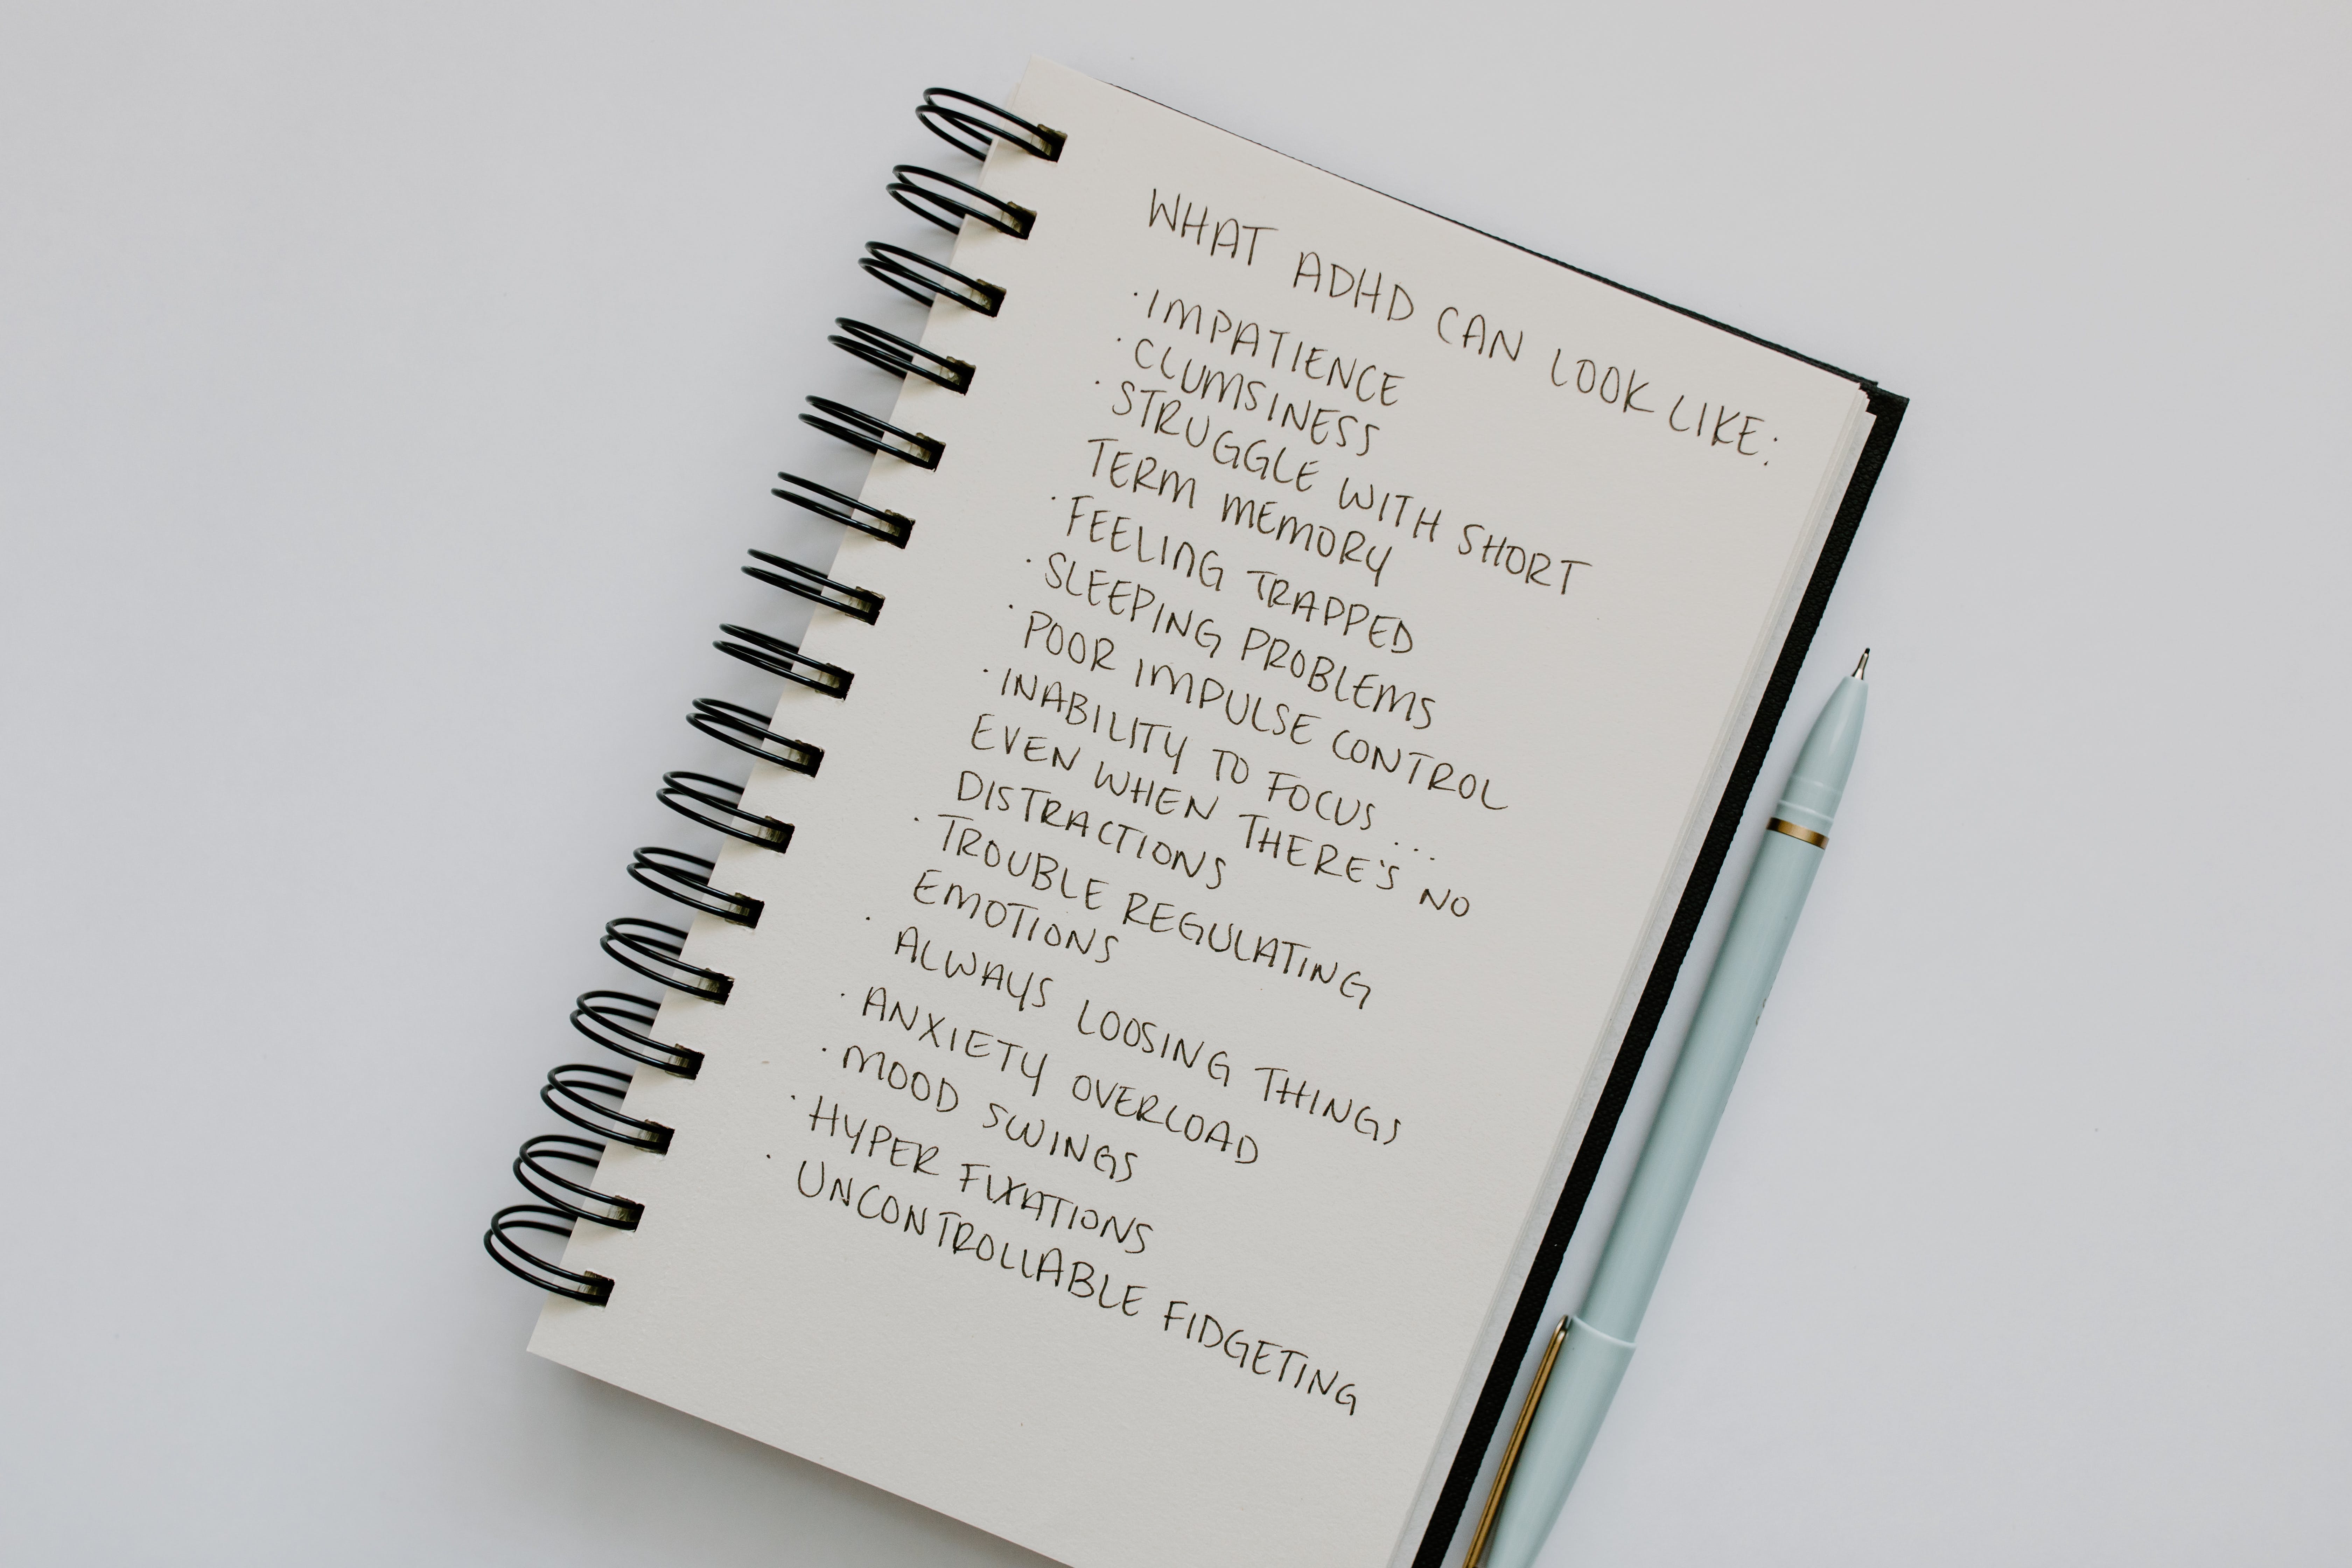 WHAT ADHD CAN LOOK LIKE:
· IMPATIENCE
· CLUMSINESS
· STRUGGLE WITH SHORT
TERM MEMORY
· FEELING TRAPPED
· SLEEPING PROBLEMS
· POOR IMPULSE CONTROL
· INABILITY TO FOCUS ...
EVEN WHEN THERE'S NO
DISTRACTIONS
· TROUBLE REGULATING
EMOTIONS
· ALWAYS LOOSING THINGS
· ANXIETY OVERLOAD
· MOOD SWINGS
· HYPER FIXATIONS
· UNCONTROLLABLE FIDGETING